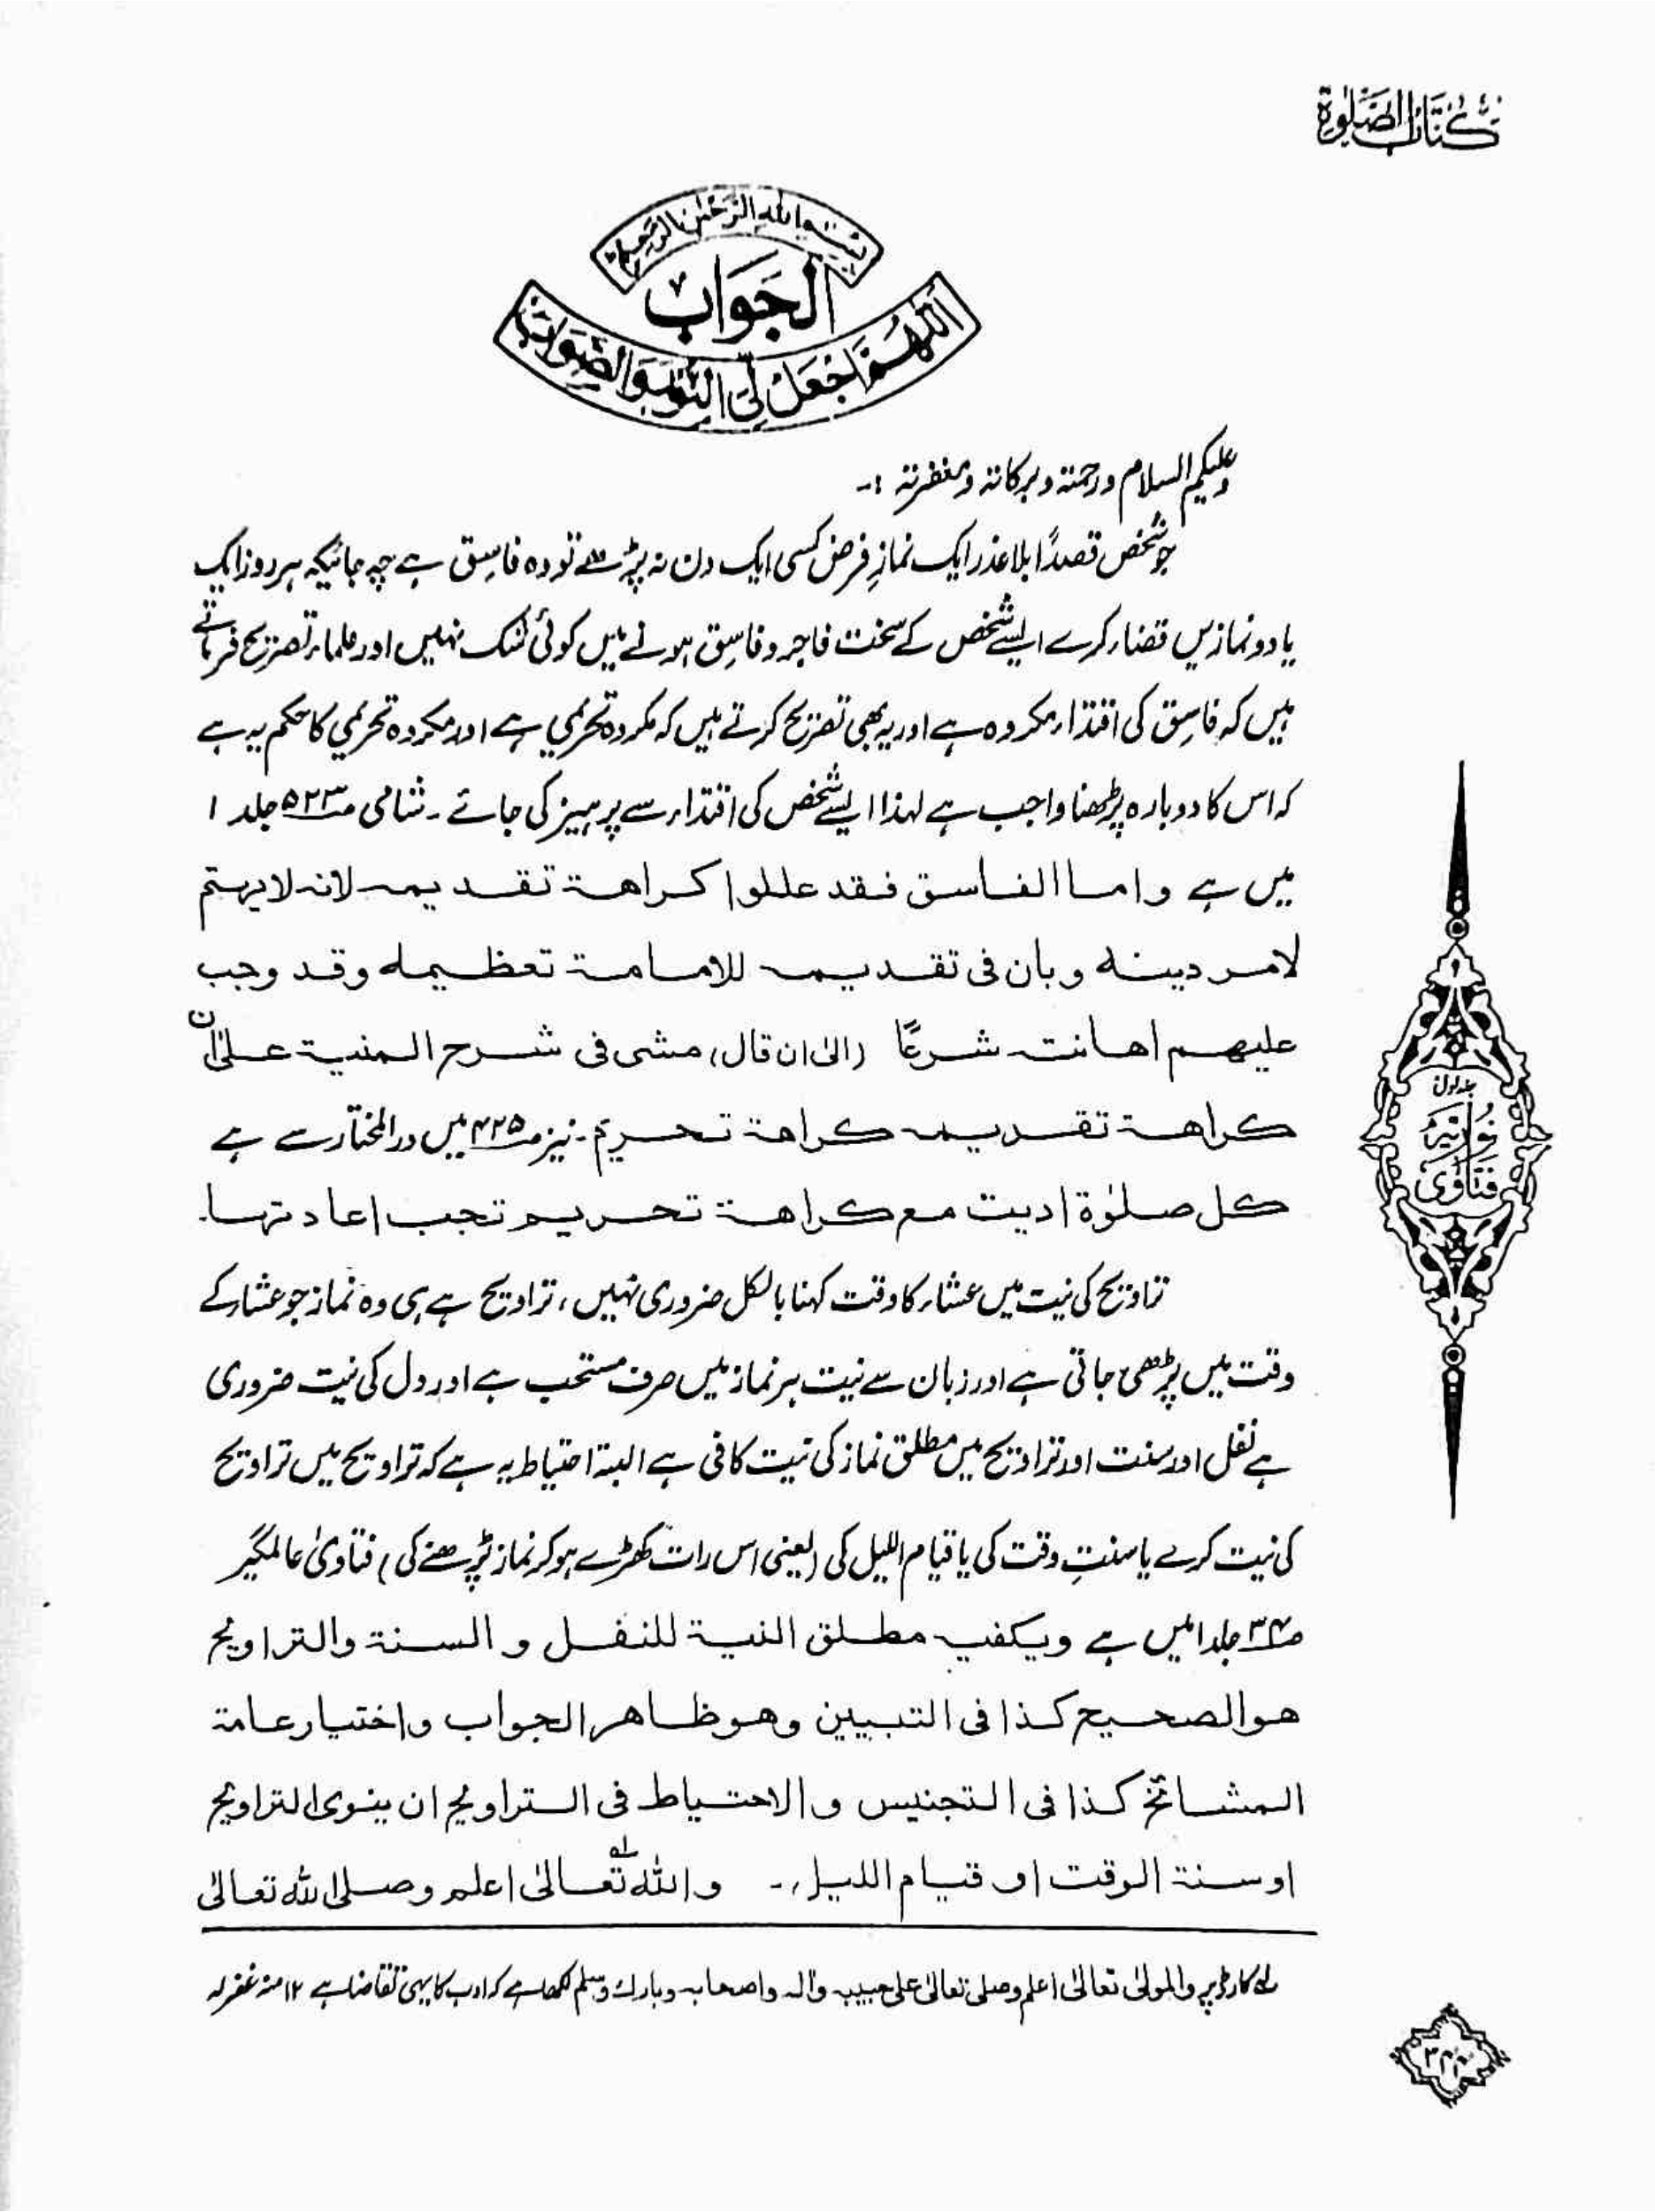 کتاب الصلوٰۃ
بسم اللہ الرحمٰن الرحیم
الجواب
اللہم اجعل لی النور والصواب
وعلیکم السلام ورحمتہ وبرکاتہ ومغفرتہ :-
جو شخص قصدًا بلا عذر ایک نمازِ فرض کسی ایک دن نہ پڑھے تو وہ فاسِق ہے چہ جائیکہ ہر روز ایک
یا دو نمازیں قضاء کرے ایسے شخص کے سخت فاجر و فاسِق ہونے میں کوئی شک نہیں اور علماء تصریح فرماتے
ہیں کہ فاسِق کی اقتداء مکروہ ہے اور یہ بھی تصریح کرتے ہیں کہ مکروہ تحریمی ہے اور مکروہ تحریمی کا حکم یہ ہے
کہ اس کا دوبارہ پڑھنا واجب ہے لہذا ایسے شخص کی اقتداء سے پرہیز کی جائے ۔ شامی صـ۵۲۳ جلد ۱
میں ہے واما الفاسق فقد عللوا کراھۃ تقدیمہ لانہ لا یہتم
لامر دینہ وبان فی تقدیمہ للامامۃ تعظیمہ وقد وجب
علیھم اھانتہ شرعًا (الیٰ ان قال) مشی فی شرح المنیۃ علیٰ ان
کراھۃ تقدیمہ کراھۃ تحریم ۔ نیز صـ۴۲۵ میں در المختار سے ہے
کل صلوٰۃ ادیت مع کراھۃ تحریم تجب اعادتہا۔
تراویح کی نیت میں عشاء کا وقت کہنا بالکل ضروری نہیں ، تراویح ہے ہی وہ نماز جو عشاء کے
وقت میں پڑھی جاتی ہے اور زبان سے نیت ہر نماز میں صرف مستحب ہے اور دل کی نیت ضروری
ہے نفل اور سنت اور تراویح میں مطلق نماز کی نیت کافی ہے البتہ احتیاط یہ ہے کہ تراویح میں تراویح
کی نیت کرے یا سنتِ وقت کی یا قیام اللیل کی (یعنی اس رات کھڑے ہو کر نماز پڑھنے کی) فتاویٰ عالمگیر
صـ۳۴ جلد ۱ میں ہے ویکفیہ مطلق النیۃ للنفل و السنۃ والتراویح
ھو الصحیح کذا فی التبیین وھو ظاھر الجواب واختیار عامۃ
المشائخ کذا فی التجنیس والاحتیاط فی التراویح ان ینوی التراویح
او سنۃ الوقت او قیام اللیل ،۔ واللہ تعالیٰ لہ اعلم وصلی اللہ تعالیٰ
لہ کارڈ پر والمولیٰ تعالیٰ اعلم وصلی تعالیٰ علیٰ حبیبہ وآلہ واصحابہ وبارک وسلم لکھا ہے کہ ادب کا یہی تقاضا ہے ۱۲ منہ غفرلہ
جلد اول
نوریہ
فتاوٰی